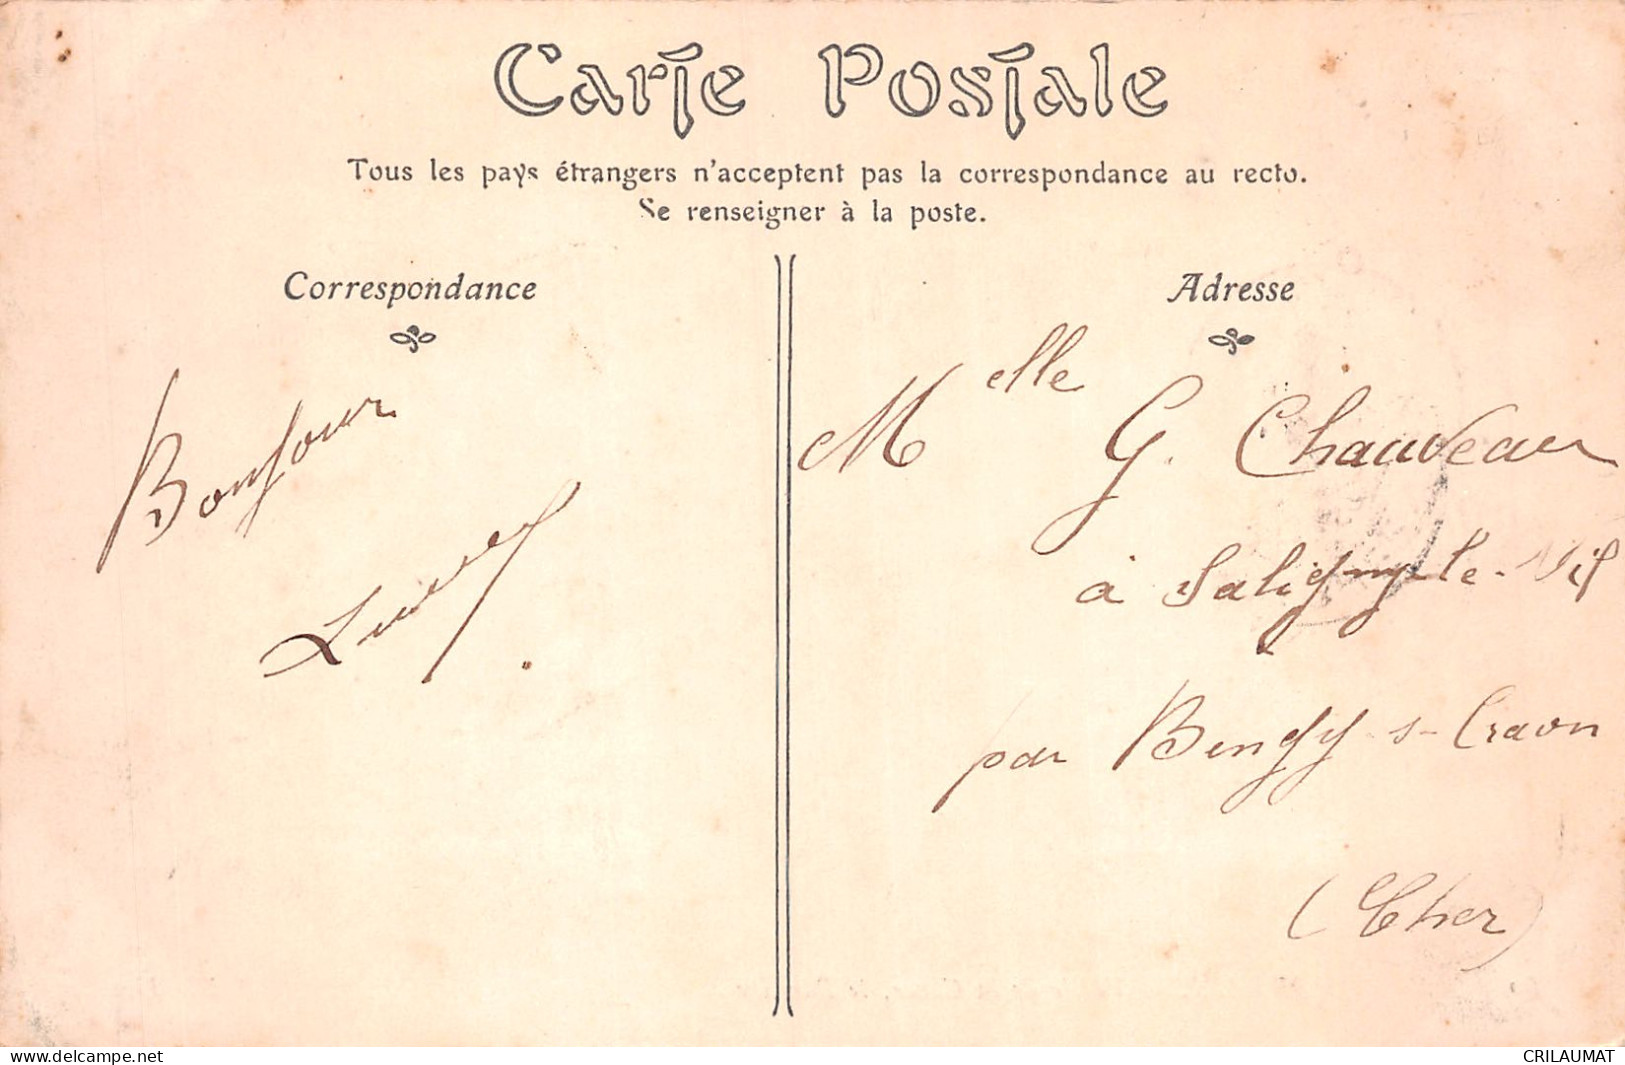 Carte Postale
Tous les pays étrangers n'acceptent pas la correspondance au recto.
Se renseigner à la poste.
Correspondance
Bonjour
Adresse
Melle G. Chauveau
à Saligny-le-Vif
par Bengy-s-Craon
(Cher)
www.delcampe.net
CRILAUMAT